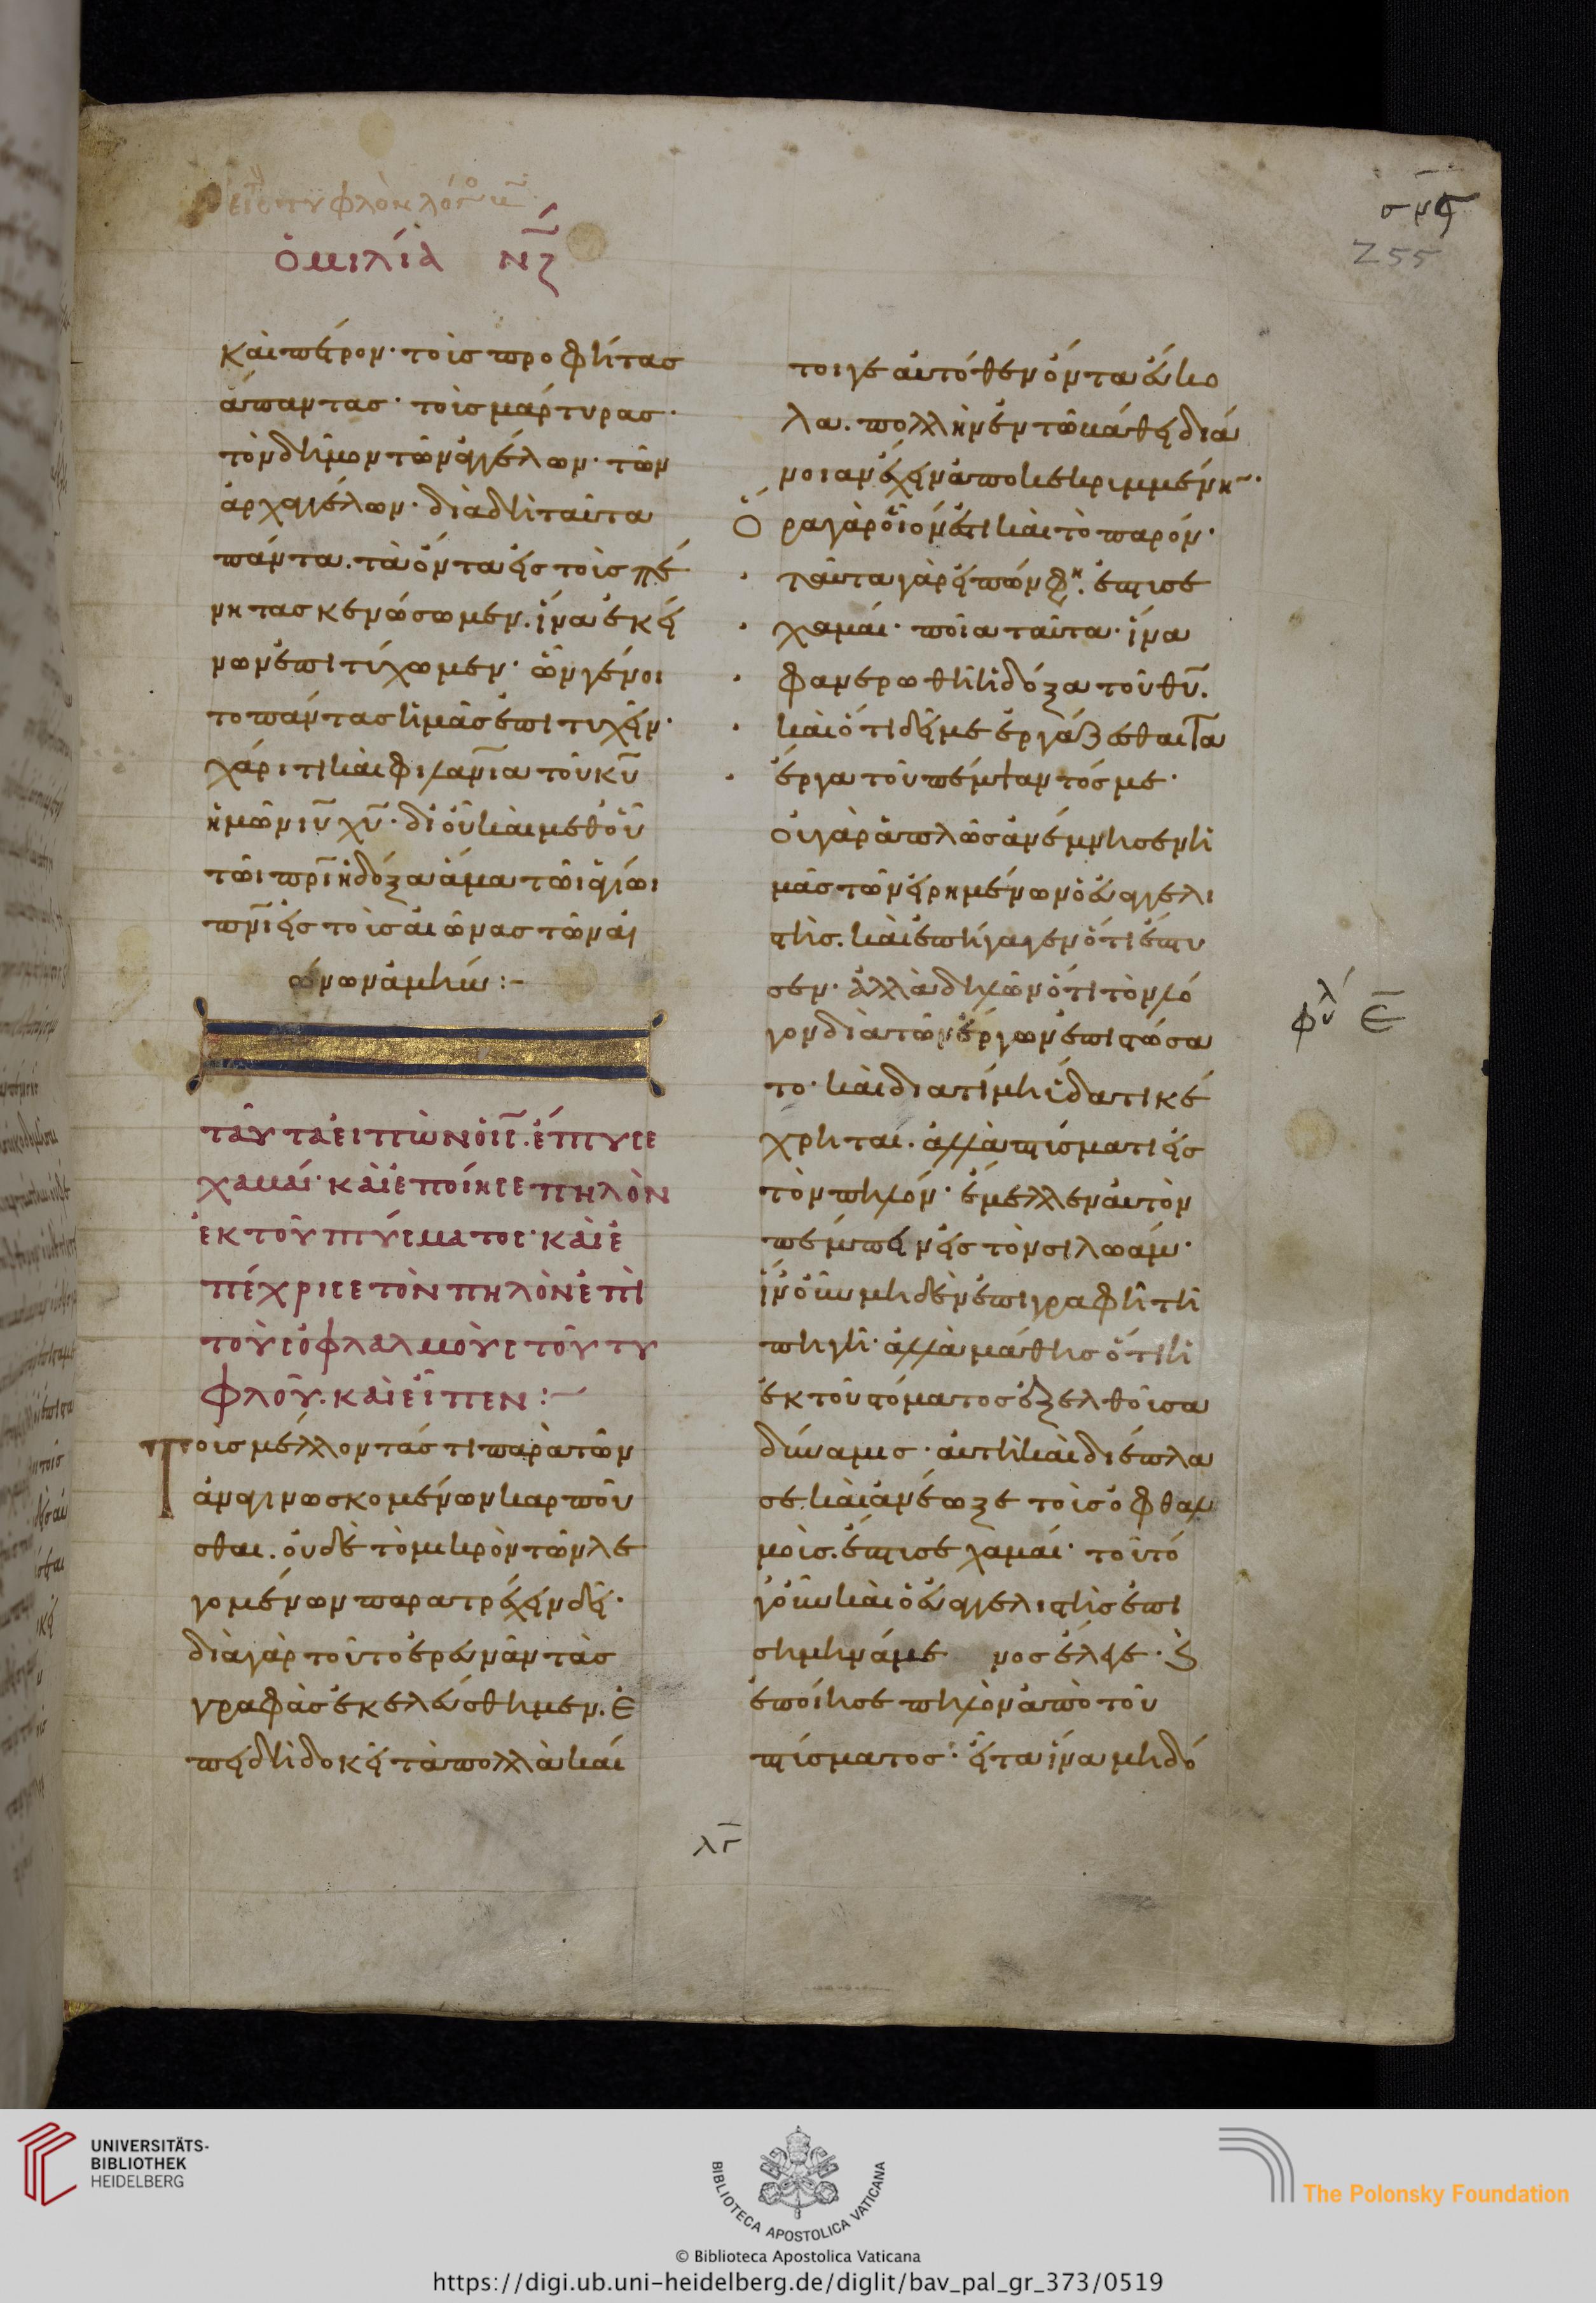 εἰς τὸν τυφλὸν λόγο
ὁμιλία νζ
σμϛ
255
καὶ πέτρον· τοὺς προφήτας
ἅπαντας· τοὺς μάρτυρας·
τὸν δῆμον τῶν ἀγγέλων· τῶν
ἀρχαγγέλων· διὰ δὴ ταῦτα
πάντα. τὰ ὄντα εἰς τοὺς πέ
νητας κενώσωμεν. ἵνα ἐκεί
νων ἐπιτύχωμεν· ὧν γένοι
το πάντας ἡμᾶς ἐπιτυχεῖν·
χάριτι καὶ φιλανια τοῦ κυ
ἡμῶν ιυ χυ· δι' οὗ καὶ μεθ' οὗ
τῶι πρι ἡ δόξα ἅμα τῶι ἁγίωι
πνι εἰς τοὺς αἰῶνας τῶν αἰ
ώνων ἀμήν:-
ταῦτα εἰπὼν ὁ ις. ἔπτυσε
χαμαί· καὶ ἐποίησε πηλὸν
ἐκ τοῦ πτύσματος· καὶ ἐ
πέχρισε τὸν πηλὸν ἐπὶ
τοὺς ὀφλαλμοὺς τοῦ τυ
φλοῦ. καὶ εἶπεν:-
Τοὺς μέλλοντάς τι παρὰ τῶν
ἀναγινωσκομένων καρποῦ
σθαι. οὐδὲ τὸ μικρὸν τῶν λε
γομένων παρατρέχειν δεῖ·
διὰ γὰρ τοῦτο ἐρευνᾶν τὰς
γραφὰς ἐκελεύσθημεν. ἐ
πειδὴ δοκεῖ τὰ πολλὰ καί
τοι γε αὐτόθεν ὄντα εὔκο
λα. πολλὴν ἐν τῶ κάθει διά
νοιαν ἔχειν ἀποκεκριμμένην·
Ὅ
ρα γὰρ οἷόν ἐστι καὶ τὸ παρόν·
ταῦτα γὰρ εἰπών φη. ἔπτυσε
χαμαί· ποῖα ταῦτα· ἵνα
φανερωθῆ ἡ δόξα τοῦ θυ.
καὶ ὅτι δεῖ με ἐργάζεσθαι τὰ
ἔργα τοῦ πέμψαντός με·
οὐ γὰρ ἁπλῶς ἀνέμνησεν ἡ
μᾶς τῶν εἰρημένων ὁ εὐαγγελι
στής. καὶ ἐπήγαγεν ὅτι ἔπτυ
σεν· ἀλλὰ δηλῶν ὅτι τὸν λό
γον διὰ τῶν ἔργων ἐπιστώσα
το· καὶ διατί μὴ ὕδατι κέ
χρηται. ἀλλὰ πτύσματι εἰς
τὸν πηλόν· ἔμελλεν αὐτὸν
πέμπειν εἰς τὸν σιλωάμ·
ἵν' οὖν μηδὲν ἐπιγραφῆ τῆ
πηγῆ· ἀλλὰ μάθης ὅτι ἡ
ἐκ τοῦ στόματος ἐξελθοῦσα
δύναμις· αὐτὴ καὶ διέπλα
σε καὶ ἀνέωξε τοὺς ὀφθαλ
μούς. ἔπτυσε χαμαί· τοῦτό
γ' οὖν καὶ ὁ εὐαγγελιστὴς ἐπι
σημηνάμενος ἔλεγε· καὶ
ἐποίησε πηλὸν ἀπὸ τοῦ
πτύσματος· εἶτα ἵνα μὴ δό
φυλ ε
λγ
UNIVERSITÄTS-
BIBLIOTHEK
HEIDELBERG
BIBLIOTECA APOSTOLICA VATICANA
The Polonsky Foundation
© Biblioteca Apostolica Vaticana
https://digi.ub.uni-heidelberg.de/diglit/bav_pal_gr_373/0519